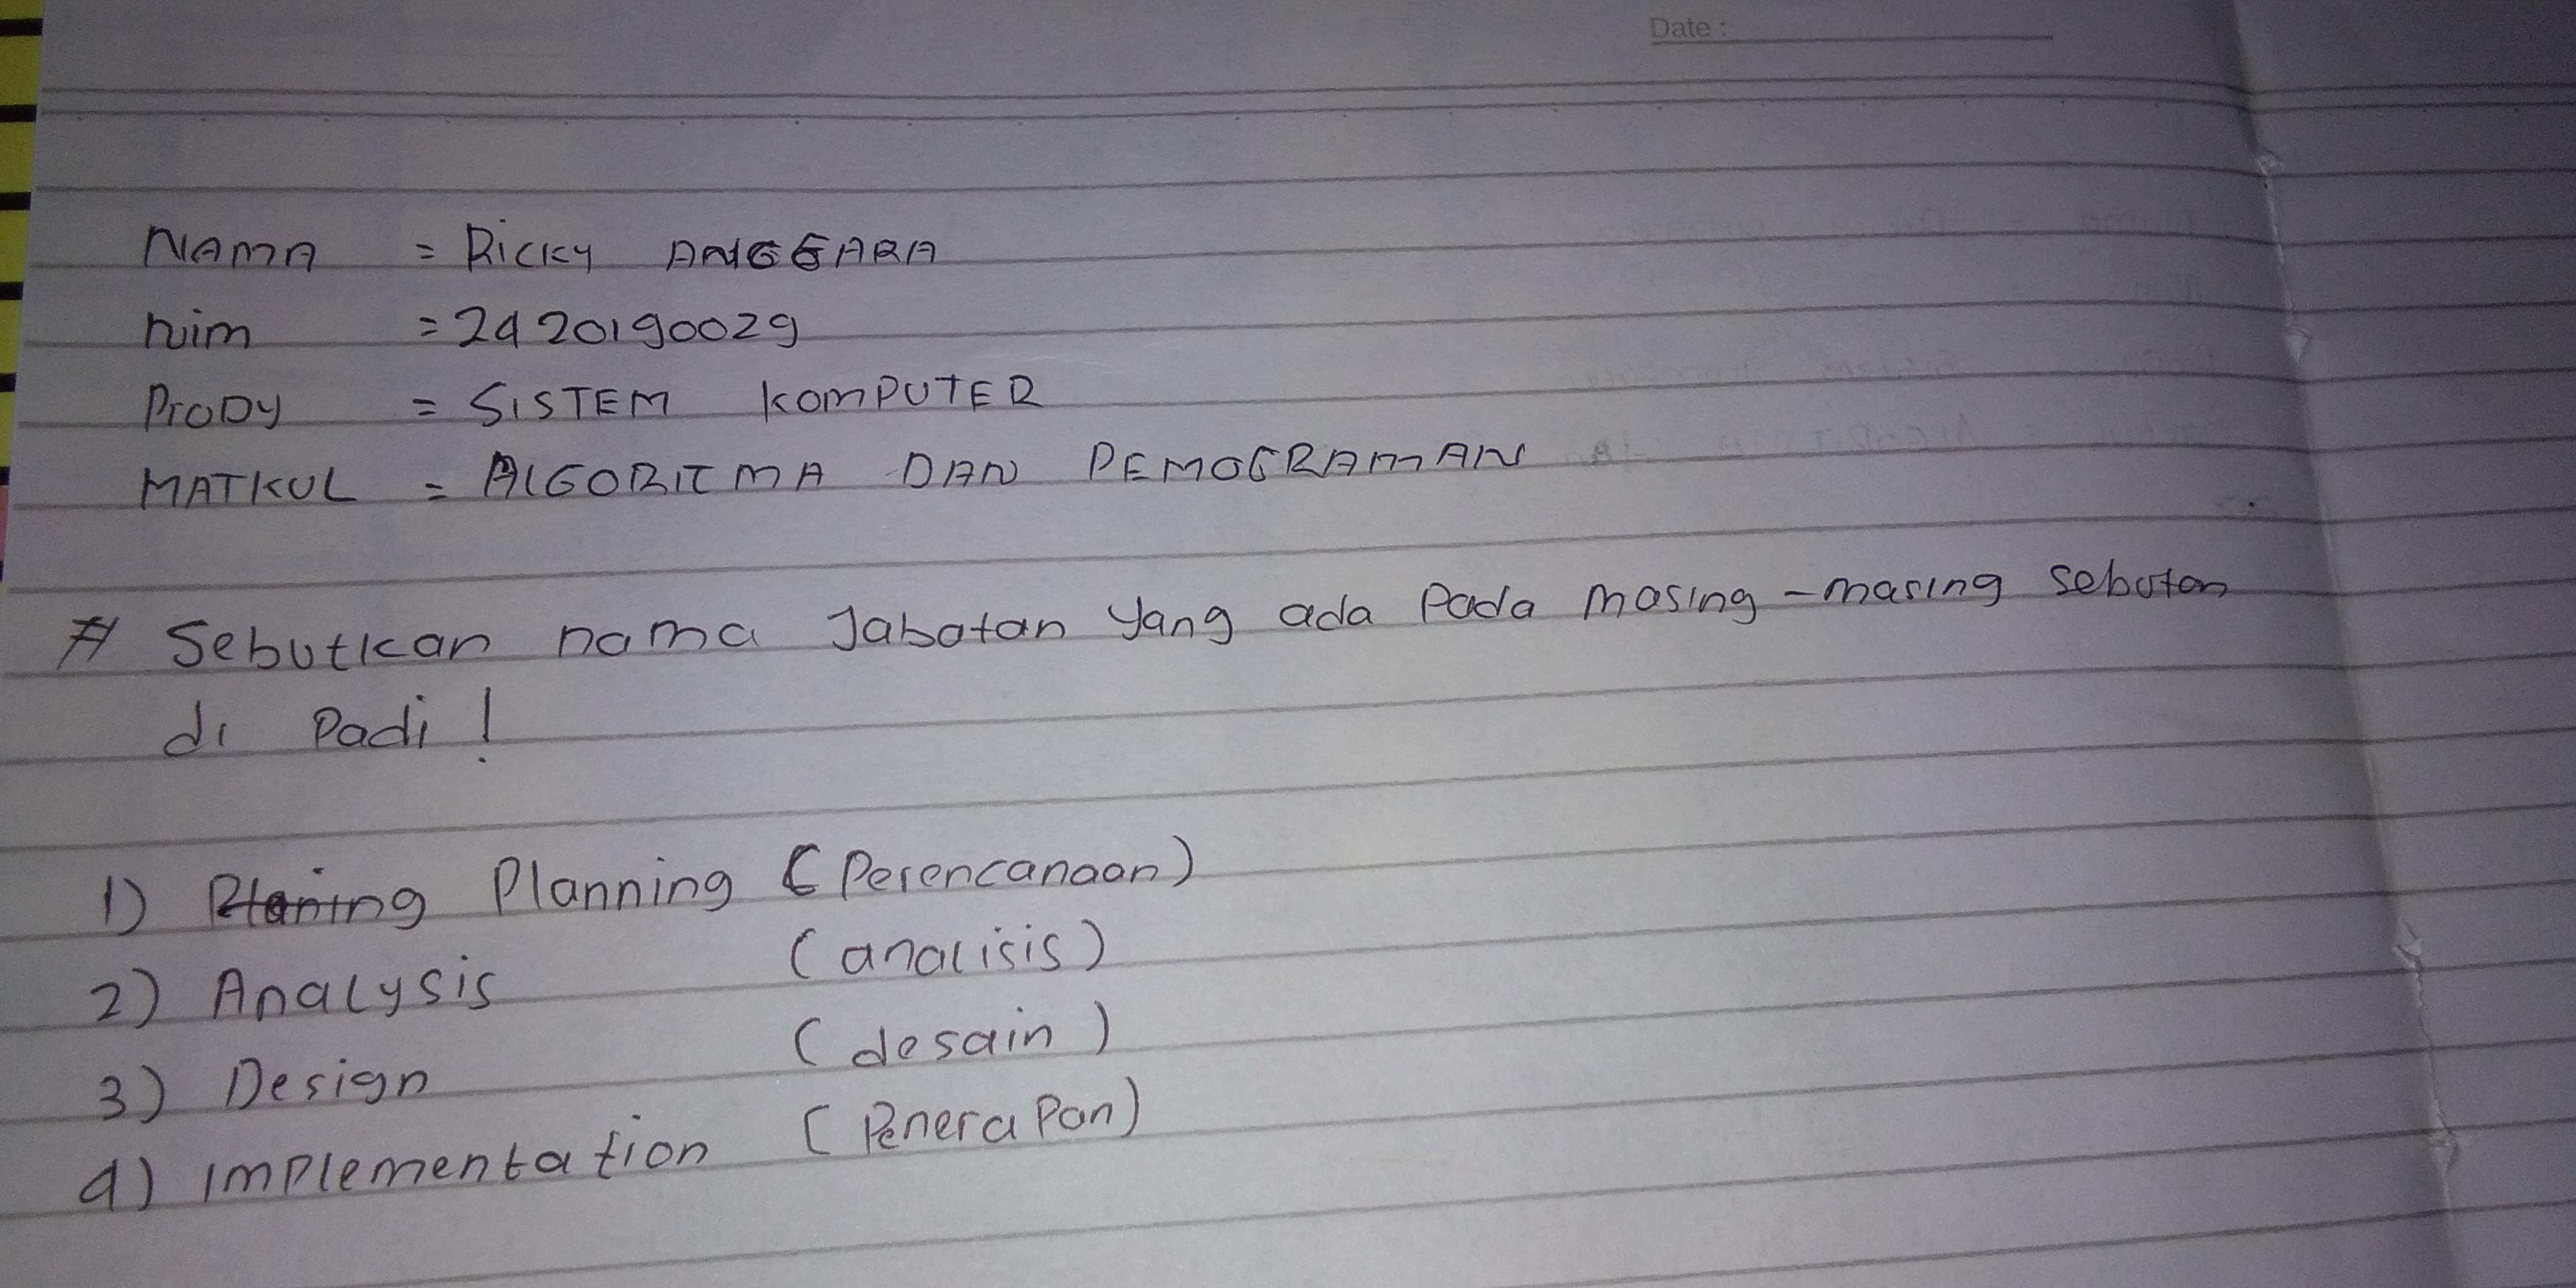 Date :
NAMA = Ricky ANGGARA
nim = 2420190029
PrODy = SISTEM KOMPUTER
MATKUL = ALGORITMA DAN PEMOGRAMAN
# Sebutkan nama Jabatan yang ada Pada masing-masing sebutan
di Padi !
1) Planing Planning (Perencanaan)
2) Analysis (analisis)
3) Design (desain)
4) Implementation (Penerapan)